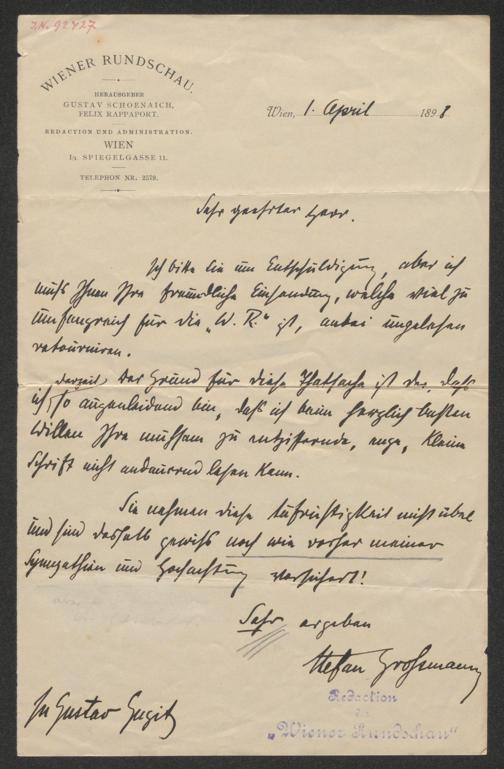 I.N. 92427
WIENER RUNDSCHAU.
HERAUSGEBER
GUSTAV SCHOENAICH,
FELIX RAPPAPORT.
REDACTION UND ADMINISTRATION.
WIEN
I/1 SPIEGELGASSE 11.
TELEPHON NR. 2579.
Wien, 1. April 1898.
Sehr geehrter Herr.
Ich bitte Sie um Entschuldigung, aber ich
muß Ihnen Ihre freundliche Einsendung, welche viel zu
umfangreich für die „W. R." ist, anbei ungelesen
retourniren.
Der Grund für diese Thatsache ist der, daß
ich derzeit so augenleidend bin, daß ich beim herzlich besten
Willen Ihre mühsam zu entziffernde, enge, kleine
Schrift nicht andauernd lesen kann.
Sie nehmen diese Aufrichtigkeit nicht übel
und sind deshalb gewiß noch wie vorher meiner
Sympathien und Hochachtung versichert!
Sehr ergeben
Stefan Großmann
Hr Gustav Gugitz
Redaction
der
„Wiener Rundschau"